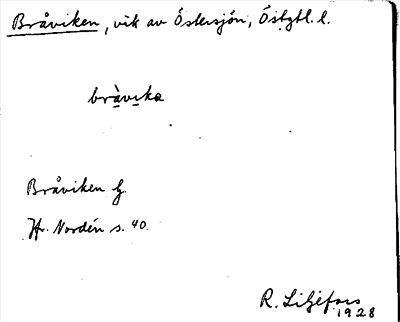 Bråviken, vik av Östersjön, Östgtl. l.
bràvika
Bråviken
Hr. Nordén s. 40.
R. Liljefors
1928